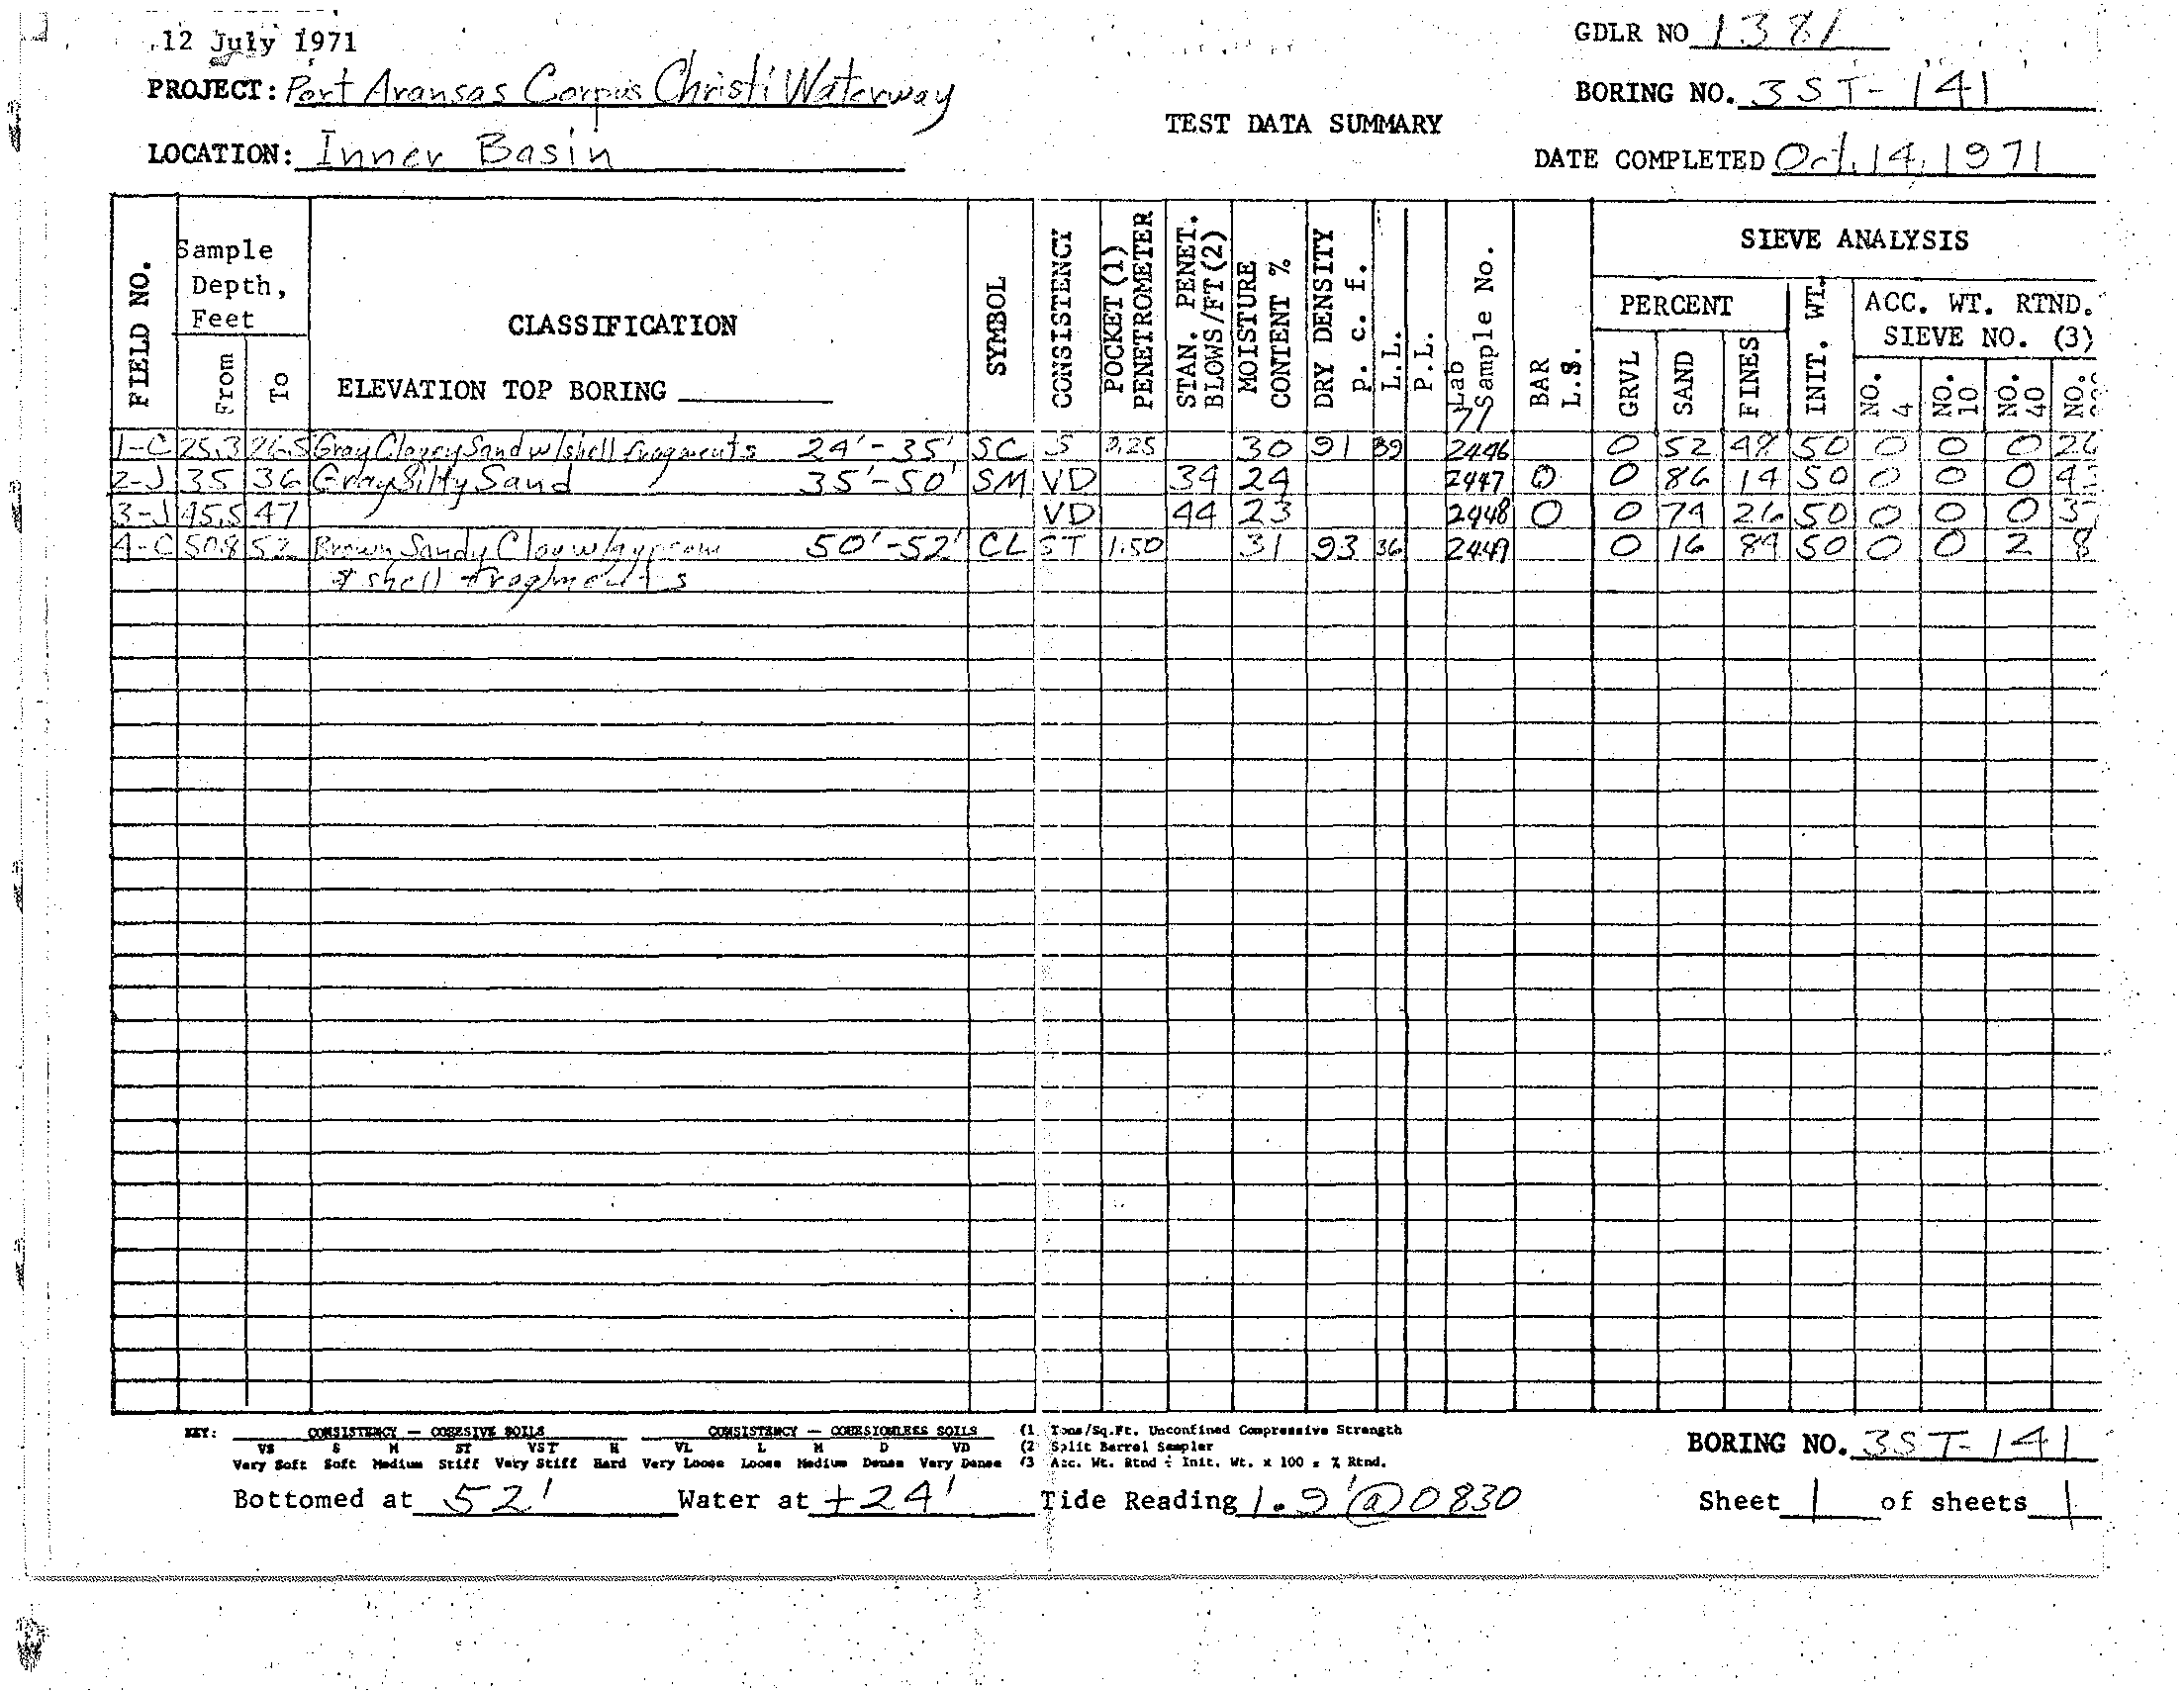 12 July 1971
GDLR NO 1381
PROJECT: Port Aransas Corpus Christi Waterway
BORING NO. 3ST-141
TEST DATA SUMMARY
LOCATION: Inner Basin
DATE COMPLETED Oct. 14, 1971
FIELD NO.
Sample Depth, Feet
From
To
CLASSIFICATION
ELEVATION TOP BORING
SYMBOL
CONSISTENCY
POCKET (1) PENETROMETER
STAN. PENET. BLOWS/FT (2)
MOISTURE CONTENT %
DRY DENSITY p. c. f.
L.L.
P.L.
Lab Sample No.
71
BAR L.S.
SIEVE ANALYSIS
PERCENT
GRVL
SAND
FINES
INIT. WT.
ACC. WT. RTND.
SIEVE NO. (3)
NO. 4
NO. 10
NO. 40
NO.
1-C 25.3 26.5 Gray Clayey Sand w/shell fragments 24'-35' SC S 30 91 39 2446 0 52 48 50 0 0 0
2-J 35 36 Gray Silty Sand 35'-50' SM VD 34 24 2447 0 0 86 14 50 0 0 0
3-J 45.5 47 VD 44 23 2448 0 0 74 26 50 0 0 0
4-C 50.8 52 Brown Sandy Clay w/gypsum 50'-52' CL ST 1.50 31 93 36 2449 0 16 84 50 0 0 2 8
& shell fragments
KEY: CONSISTENCY — COHESIVE SOILS CONSISTENCY — COHESIONLESS SOILS (1 Tons/Sq.Ft. Unconfined Compressive Strength
VS S M ST VST H VL L M D VD (2 Split Barrel Sampler
Very Soft Soft Medium Stiff Very Stiff Hard Very Loose Loose Medium Dense Very Dense (3 Acc. Wt. Rtnd ÷ Init. Wt. x 100 = % Rtnd.
BORING NO. 3ST-141
Bottomed at 52' Water at +24' Tide Reading 1.9' @ 0830 Sheet 1 of sheets 1